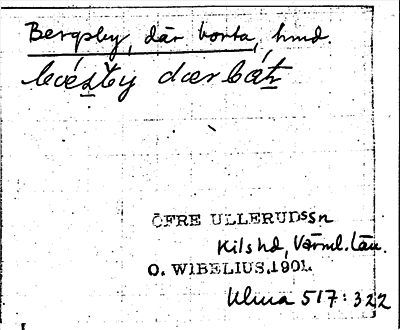 Bergsby, där borta, hmd.
dær
ÖFRE ULLERUDSSn
Kils hd, Värml. Län.
O. WIBELIUS.1901.
Ulma 517:322